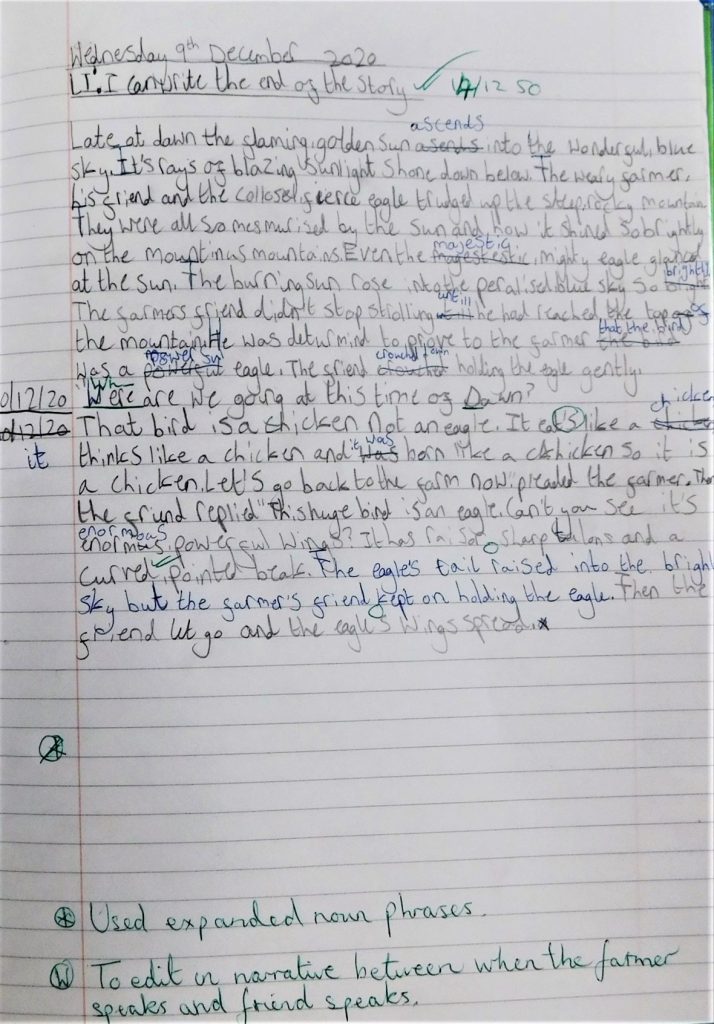 Wednesday 9th December 2020
LI: I can write the end of the story ✓ 14/12 SO
ascends
Late at dawn the flaming, golden sun asends into the wonderful, blue
sky. It's rays of blazing sunlight shone down below. The weary farmer,
his friend and the collosel, fierce eagle trudged up the steep, rocky mountain
They were all so mesmurised by the sun and how it shined so brightly
majestic
on the mountinus mountains. Even the magestestic, mighty eagle glanced
at the sun. The burning sun rose into the peralised blue sky so
brightly
The farmers friend didn't stop strolling he had reached the top of
untill
the mountain. He was deturmind to prove to the farmer the bird
that the bird
was a powerful eagle. The friend crouched holding the egle gently.
powerful crouched down
10/12/20 "Where are we going at this time of Dawn?
10/12/20 That bird is a chicken not an eagle. It eats like a chicken
chicken
it thinks like a chicken and was born like a chicken so it is
it was
a chicken. Let's go back to the farm now" pleaded the farmer. Then
the friend replied "This huge bird is an eagle. Can't you see it's
enormous
enormus, powerful wings? It has raisor sharp talons and a
curved, pointed beak. The eagle's tail raised into the bright
sky but the farmer's friend kept on holding the eagle. Then the
friend let go and the eagle's wings spread.*
* Used expanded noun phrases.
W To edit in narrative between when the farmer
speaks and friend speaks.